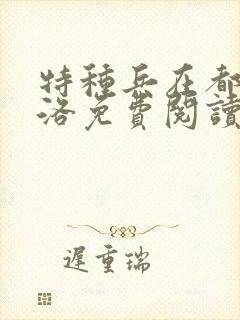 特種兵在都
洛免費閱讀
遲重瑞